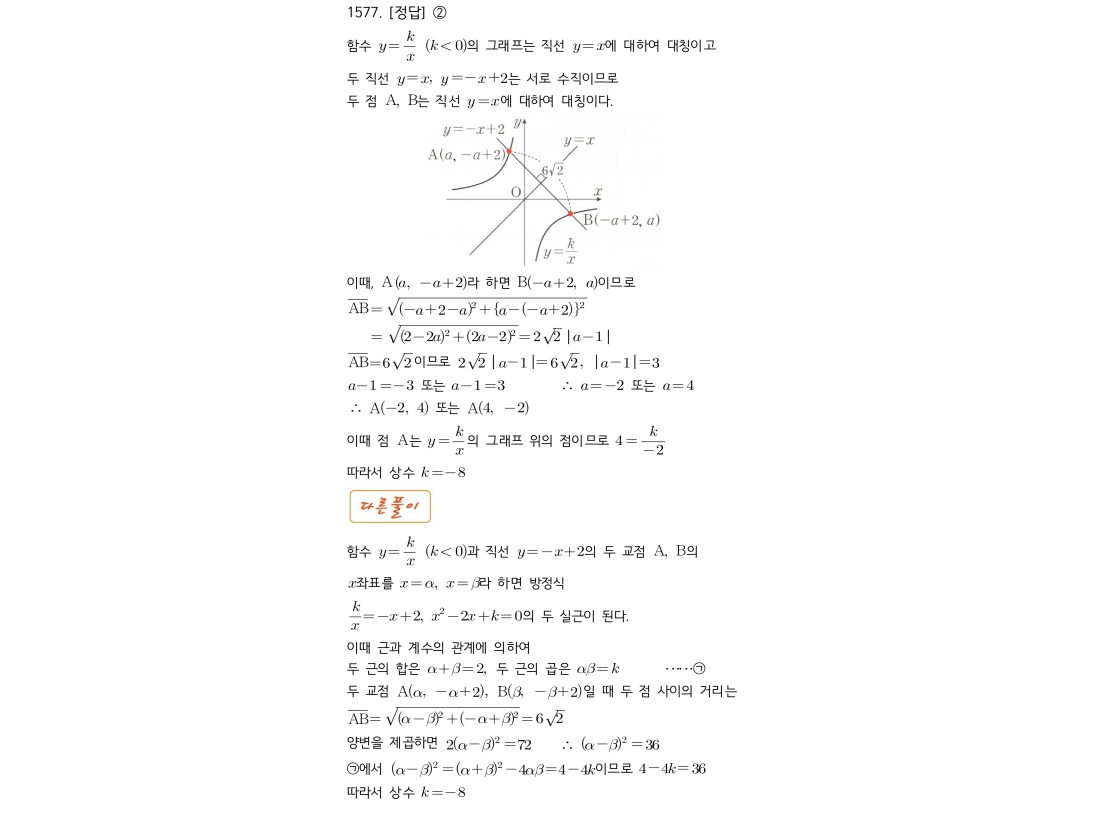 1577. [정답] ②
함수 y=k/x (k<0)의 그래프는 직선 y=x에 대하여 대칭이고
두 직선 y=x, y=-x+2는 서로 수직이므로
두 점 A, B는 직선 y=x에 대하여 대칭이다.
y=-x+2
y
y=x
A(a, -a+2)
6√2
O
x
B(-a+2, a)
y=k/x
이때, A(a, -a+2)라 하면 B(-a+2, a)이므로
AB=√((-a+2-a)²+{a-(-a+2)}²)
=√((2-2a)²+(2a-2)²)=2√2|a-1|
AB=6√2이므로 2√2|a-1|=6√2, |a-1|=3
a-1=-3 또는 a-1=3 ∴ a=-2 또는 a=4
∴ A(-2, 4) 또는 A(4, -2)
이때 점 A는 y=k/x의 그래프 위의 점이므로 4=k/-2
따라서 상수 k=-8
다른풀이
함수 y=k/x (k<0)과 직선 y=-x+2의 두 교점 A, B의
x좌표를 x=α, x=β라 하면 방정식
k/x=-x+2, x²-2x+k=0의 두 실근이 된다.
이때 근과 계수의 관계에 의하여
두 근의 합은 α+β=2, 두 근의 곱은 αβ=k ……㉠
두 교점 A(α, -α+2), B(β, -β+2)일 때 두 점 사이의 거리는
AB=√((α-β)²+(-α+β)²)=6√2
양변을 제곱하면 2(α-β)²=72 ∴ (α-β)²=36
㉠에서 (α-β)²=(α+β)²-4αβ=4-4k이므로 4-4k=36
따라서 상수 k=-8